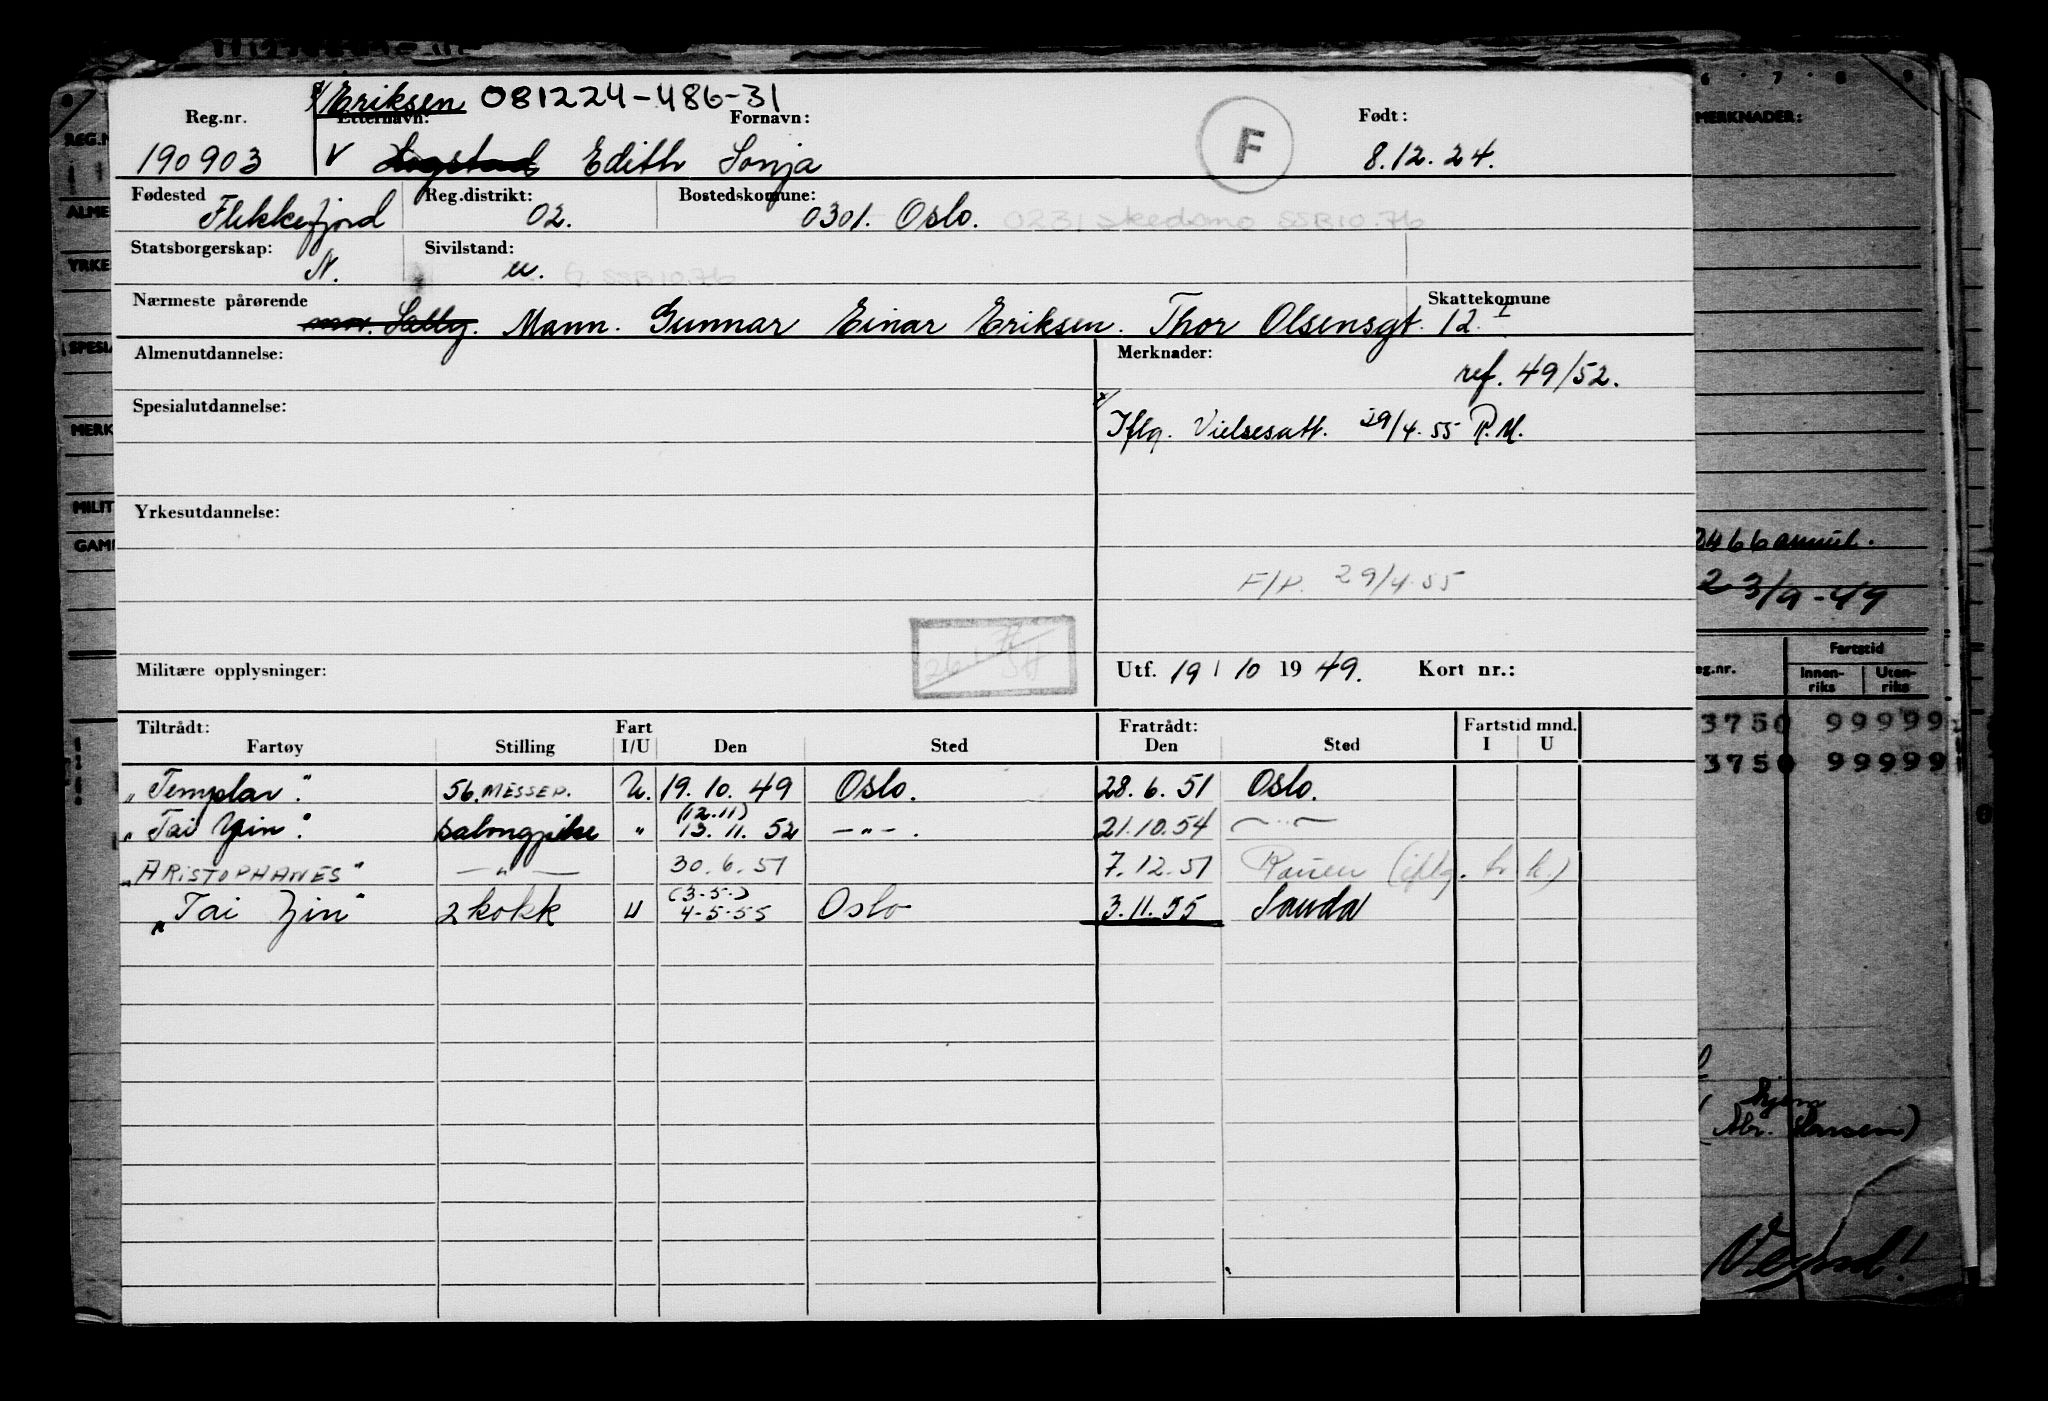 x/ Eriksen 081224-486-31
Reg.nr. Etternavn: Fornavn: Født:
190903 V Edith Sonja F 8.12.24.
Fødested Reg.distrikt: Bostedskomune:
Flekkefjord 02. 0301. Oslo. 0231 Skedsmo SSB10.76
Statsborgerskap: Sivilstand:
N. u. G SSB10.76
Nærmeste pårørende Skattekomune
mor. Sally. Mann. Gunnar Einar Eriksen. Thor Olsensgt. 12 I
Almenutdannelse: Merknader:
ref. 49/52.
Spesialutdannelse:
x/ Iflg. Vielsesatt. 29/4.55 R.M.
Yrkesutdannelse:
F/P. 29/4.55
Militære opplysninger: Utf. 19 / 10 19 49. Kort nr.:
Tiltrådt: Fart Fratrådt: Fartstid mnd.
Fartøy Stilling I/U Den Sted Den Sted I U
"Templar". 56. MESSEP. U. 19.10.49 Oslo. 28.6.51 Oslo.
(12.11)
"Tai Yin". Salongpike " 13.11.52 —"—. 21.10.54 —"—
"ARISTOPHANES" —"— 30.6.51 7.12.51 Rouen (iflg.
(3-5-)
"Tai Yin" 2 kokk U 4-5-55 Oslo 3.11.55 Sauda
6 7 8 9
REG.N
MERKNADER:
ALME
YRKE
SPESIA
MERK
MILIT
GAM
2466 annul.
2 3/9-49
Fartstid
eg.nr. Innen-riks Uten-riks
3750 99999
3750 99999
Hjem
Vend!